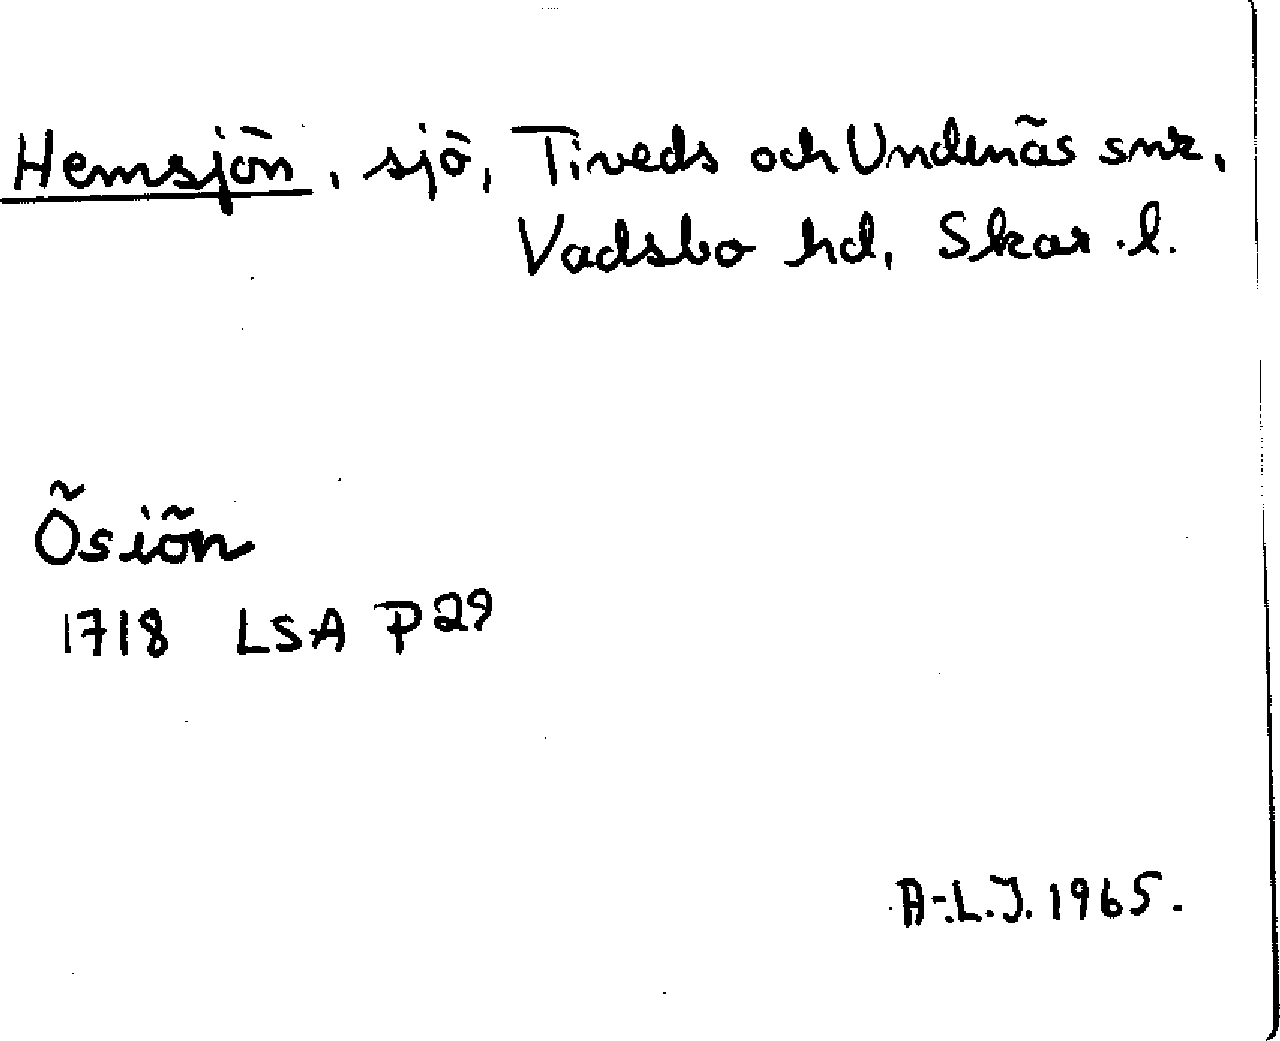 Hemsjön, sjö, Tiveds och Undenäs snr,
Vadsbo hd, Skar.l.
Ösiön
1718 LSA P29
A-L.J. 1965.